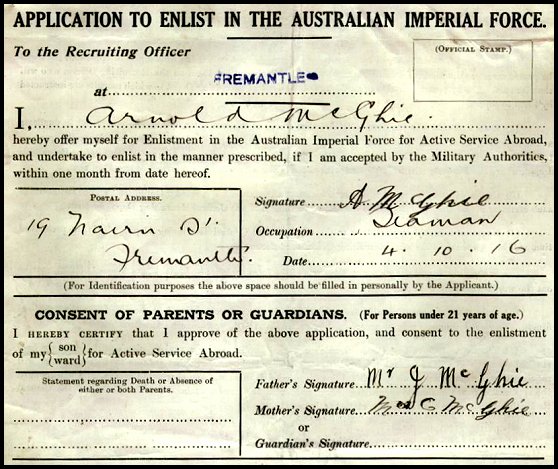 APPLICATION TO ENLIST IN THE AUSTRALIAN IMPERIAL FORCE.
To the Recruiting Officer
(OFFICIAL STAMP.)
at FREMANTLE
I, Arnold McGhie.
hereby offer myself for Enlistment in the Australian Imperial Force for Active Service Abroad,
and undertake to enlist in the manner prescribed, if I am accepted by the Military Authorities,
within one month from date hereof.
POSTAL ADDRESS.
19 Nairn St.
Fremantle.
Signature A McGhie
Occupation Seaman
Date 4. 10. 16
(For Identification purposes the above space should be filled in personally by the Applicant.)
CONSENT OF PARENTS OR GUARDIANS. (For Persons under 21 years of age.)
I HEREBY CERTIFY that I approve of the above application, and consent to the enlistment
of my {son ward} for Active Service Abroad.
Statement regarding Death or Absence of
either or both Parents.
Father's Signature Mr J McGhie
Mother's Signature Mrs C McGhie
or
Guardian's Signature